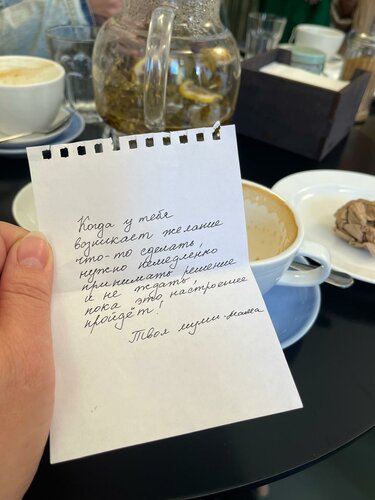 Когда у тебя
возникает желание
что-то сделать,
нужно немедленно
принимать решение
и не ждать,
пока это настроение
пройдёт!
Твоя муми-мама